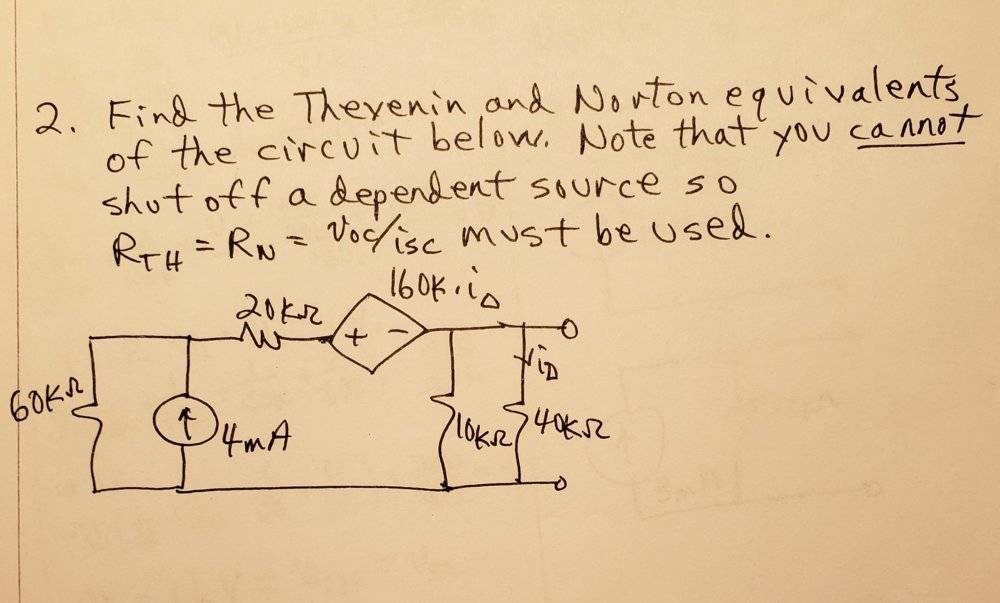 2. Find the Thevenin and Norton equivalents
of the circuit below. Note that you cannot
shut off a dependent source so
RTH = RN = voc/isc must be used.
160K·i∆
20KΩ
+ -
i∆
60KΩ
4mA
10KΩ
40KΩ